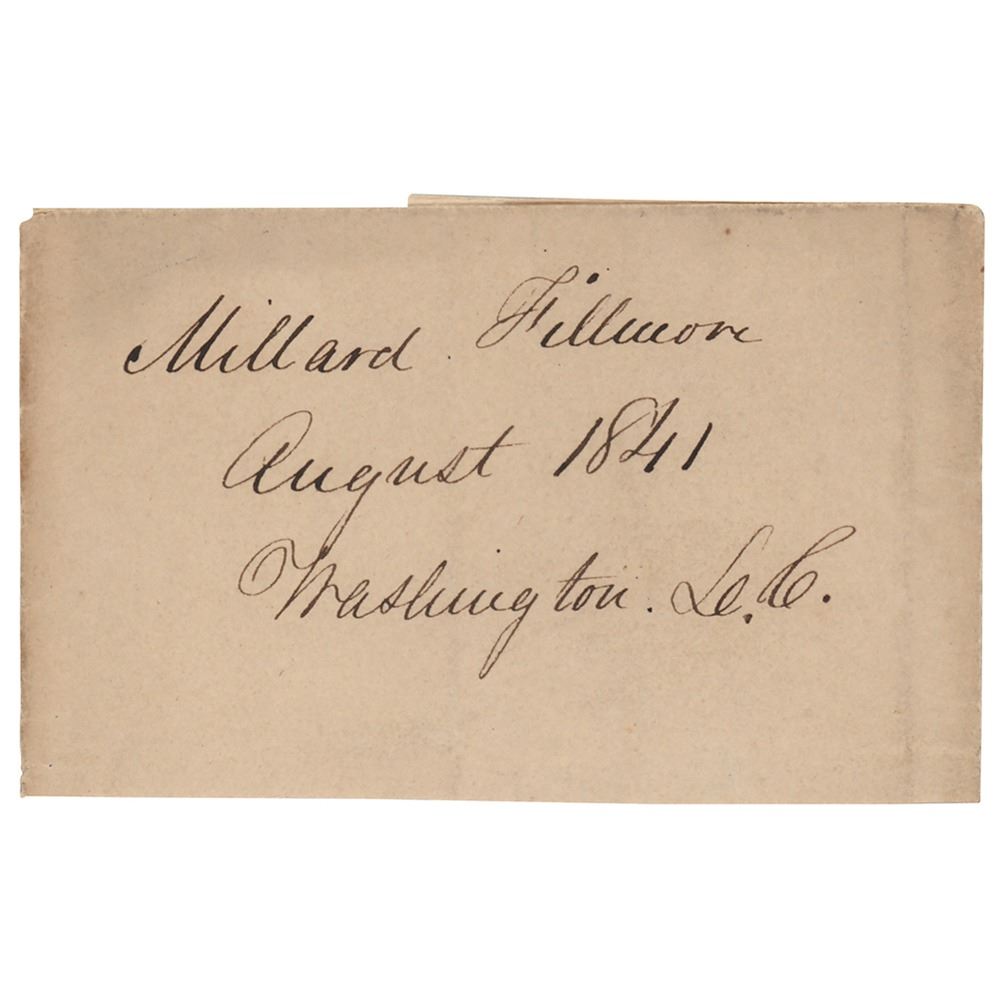 Millard Fillmore
August 1841
Washington. D.C.